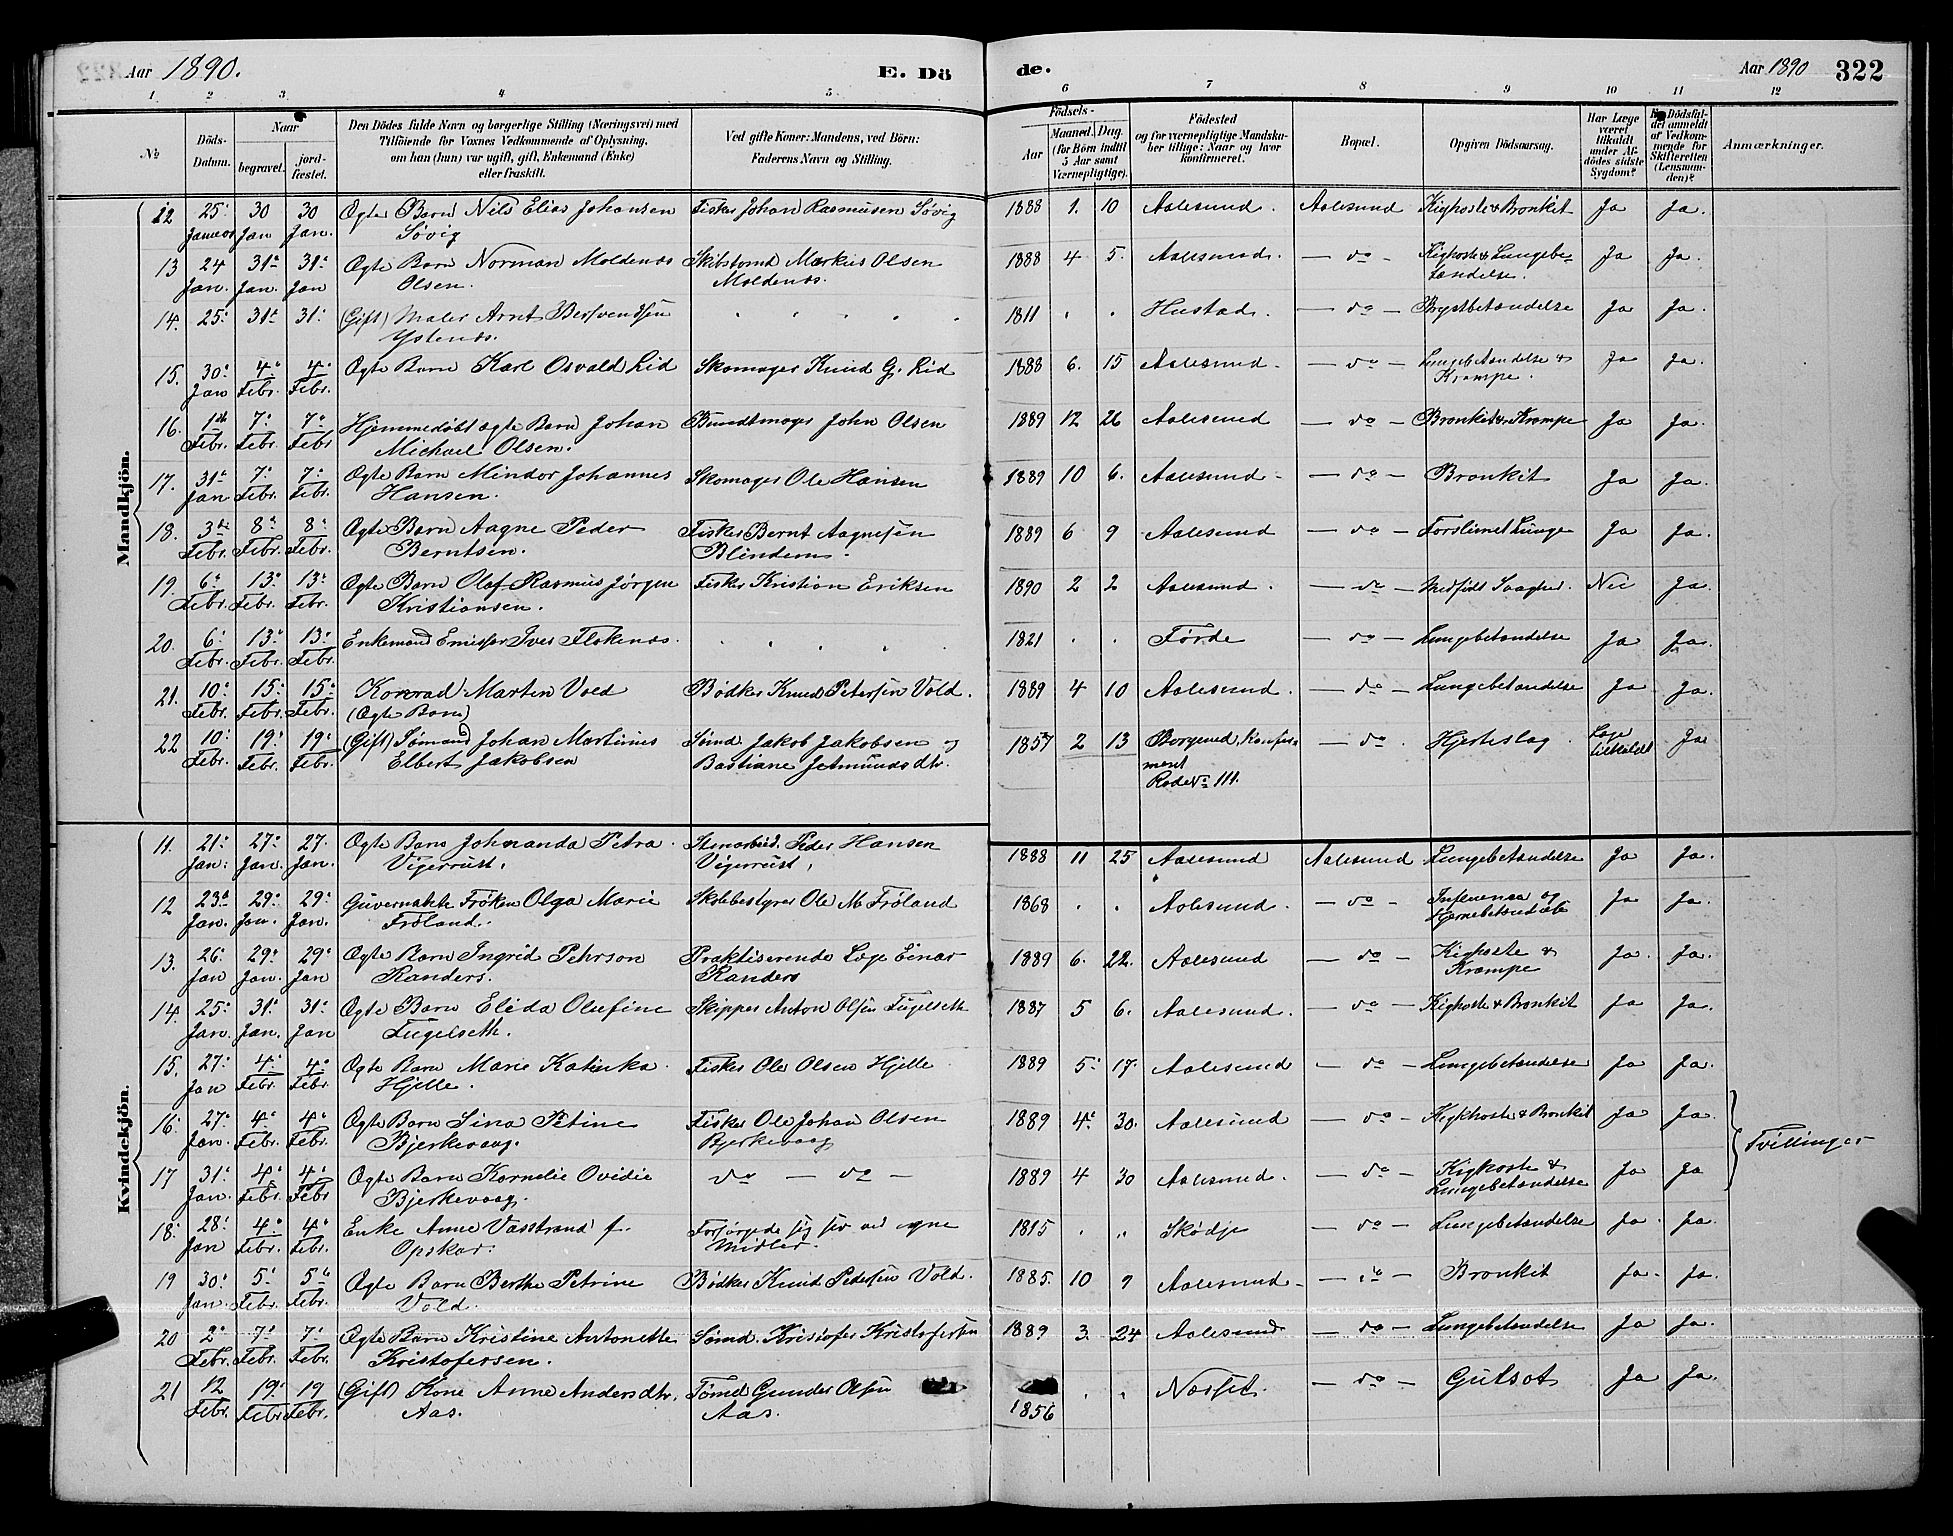 Aar 1890.
E. Dö
de.
Aar 1890
322
1 2 3 4 5 6 7 8 9 10 11 12
No
Döds-Datum.
Naar
begravet.
jord-fæstet.
Den Dödes fulde Navn og borgerlige Stilling (Næringsvei) med
Tilföiende for Voxnes Vedkommende af Oplysning,
om han (hun) var ugift, gift, Enkemand (Enke)
eller fraskilt.
Ved gifte Koner: Mandens, ved Börn:
Faderens Navn og Stilling.
Födsels-
Aar
Maaned. Dag.
(for Börn indtil
5 Aar samt
Værnepligtige).
Födested
og for værnepligtige Mandska-
ber tillige: Naar og hvor
konfirmeret.
Bopæl.
Opgiven Dödsaarsag.
Har Læge
været
tilkaldt
under Af-
dödes sidste
Sygdom?
Er Dödsfal-
det anmeldt
af Vedkom-
mende for
Skifteretten
(Lensman-
den)?
Anmærkninger.
Mandkjön.
12 25. Januar 30 Jan 30 Jan. Ægte Barn Nils Elias Johansen Søvig Fisker Johan Rasmusen Søvig 1888 1. 10 Aalesund. Aalesund Kighoste & Bronkit Ja Ja.
13 24 Jan. 31. Jan. 31. Jan Ægte Barn Norman Moldenæs Olsen. Skibstømd Markus Olsen Moldenæs. 1888 4 5. Aalesund. — do - Kighoste & Lungebetændelse. Ja Ja.
14. 25. 31. 31. (Gift) Maler Arnt Bersvendsen Ystenæs. 1811 Hustad. — do — Brystbetændelse Ja Ja.
15. 30. Jan 4. Febr. 4. Febr. Ægte Barn Karl Osvald Lid Skomager Knud G. Lid 1888 6. 15 Aalesund. — do — Lungebetændelse & Krampe. Ja Ja.
16. 1ste Febr. 7. Febr. 7. Febr Hjemmedøbt ægte Barn Johan Michael Olsen. Bundtmager John Olsen 1889 12 26 Aalesund — do — Bronkit & Krampe Ja Ja.
17. 31. Jan 7. Febr. 7. Febr. Ægte Barn Mindor Johannes Hansen. Skomager Ole Hansen 1889 10 6. Aalesund — do — Bronkit Ja Ja.
18. 3die Febr. 8. Febr. 8. Febr. Ægte Barn Aagne Peder Berntsen. Fisker Bernt Aagnesen Blindem. 1889 6 9 Aalesund — do — Forslimet Lunge Ja Ja.
19. 6. Febr. 13. Febr. 13. Febr. Ægte Barn Olaf Rasmus Jørgen Kristiansen. Fisker Kristian Eriksen 1890 2 2 Aalesund. — do — Medfødt Svaghed. Nei Ja.
20. 6. Febr. 13. Febr. 13. Febr. Enkemand Emissær Iver Flokenæs. 1821 Førde — do — Lungebetændelse Ja Ja.
21. 10. Febr. 15. Febr. 15. Febr. Konrad Martin Vold (Ægte Barn) Bødker Knud Petersen Vold. 1889 4 10 Aalesund. — do — Lungebetændelse Ja Ja.
22 10. Febr. 19. Febr. 19. Febr. (Gift) Sømand Johan Martinus Elbert Jakobsen Sømd. Jakob Jakobsen og Bastiane J. Amundsdtr. 1857 2 13 Borgund, — do . Hjerteslag Læge tilkaldt Ja
Rode No 111.
Kvindekjön.
11. 21. Jan. 27. Jan. 27. Jan. Ægte Barn Johnanda Petra Vigerrust. Stenarbeid. Peder Hansen Vigerrust. 1888 11 25 Aalesund Aalesund Lungebetændelse Ja Ja.
12 23. Jan. 29. Jan. 29. Jan. Guvernante Frøken Olga Marie Frøland. Skolebestyrer Ole M. Frøland 1868 Aalesund. — do — Influenca og Ja Ja.
13. 26. Jan 29. Jan. 29. Jan Ægte Barn Ingrid Pehrson Randers. Praktiserende Læge Einar Randers 1889 6. 22. Aalesund — do — Kighoste & Krampe Ja. Ja.
14. 25. Jan. 31. Jan. 31. Jan Ægte Barn Elida Olufine Fugelseth. Skipper Anton Olsen Fugelseth 1887 5 6. Aalesund. — do — Kighoste & Bronkit Ja Ja.
15. 27. Jan 4. Febr. 4. Febr. Ægte Barn Marie Katinka Hjelle. Fisker Ole Olsen Hjelle 1889 5. 17. Aalesund — do — Lungebetændelse Ja Ja.
16. 27. Jan. 4. Febr. 4. Febr. Ægte Barn Sina Petine Bjerkevaag. Fisker Ole Johan Olsen Bjerkevaag 1889 4. 30. Aalesund — do — Kighoste & Bronkit Ja Ja.
Tvillinger
17 31. Jan. 4. Febr. 4. Febr Ægte Barn Kornelie Ovidie Bjerkevaag. do — do — 1889 4 30 Aalesund. — do — Kighoste & Lungebetændelse Ja Ja
18. 28. Jan 4. Febr. 4. Febr. Enke Anne Vasstrand f. Opskar. Forsørgede sig selv ved egne Midler. 1815 Skødje — do — Lungebetændelse Ja. Ja.
19 30. Jan. 5. Febr. 5. Febr. Ægte Barn Berthe Petrine Vold. Bødker Knud Pedersen Vold. 1885. 10 9 Aalesund — do — Bronkit Ja. Ja.
20 2. Febr. 7. Febr. 7. Febr. Ægte Barn Kristine Antonette Kristofersen. Sømd. Kristofer Kristofersen 1889 3. 24 Aalesund — do — Lungebetændelse Ja Ja.
21 12 Febr. 19. Febr 19 Febr. (Gift) Kone Anne Andersdtr. Aas. Tømd Gunder Olsen Aas. 1856 Nesset. — do — Gulsot Ja Ja.